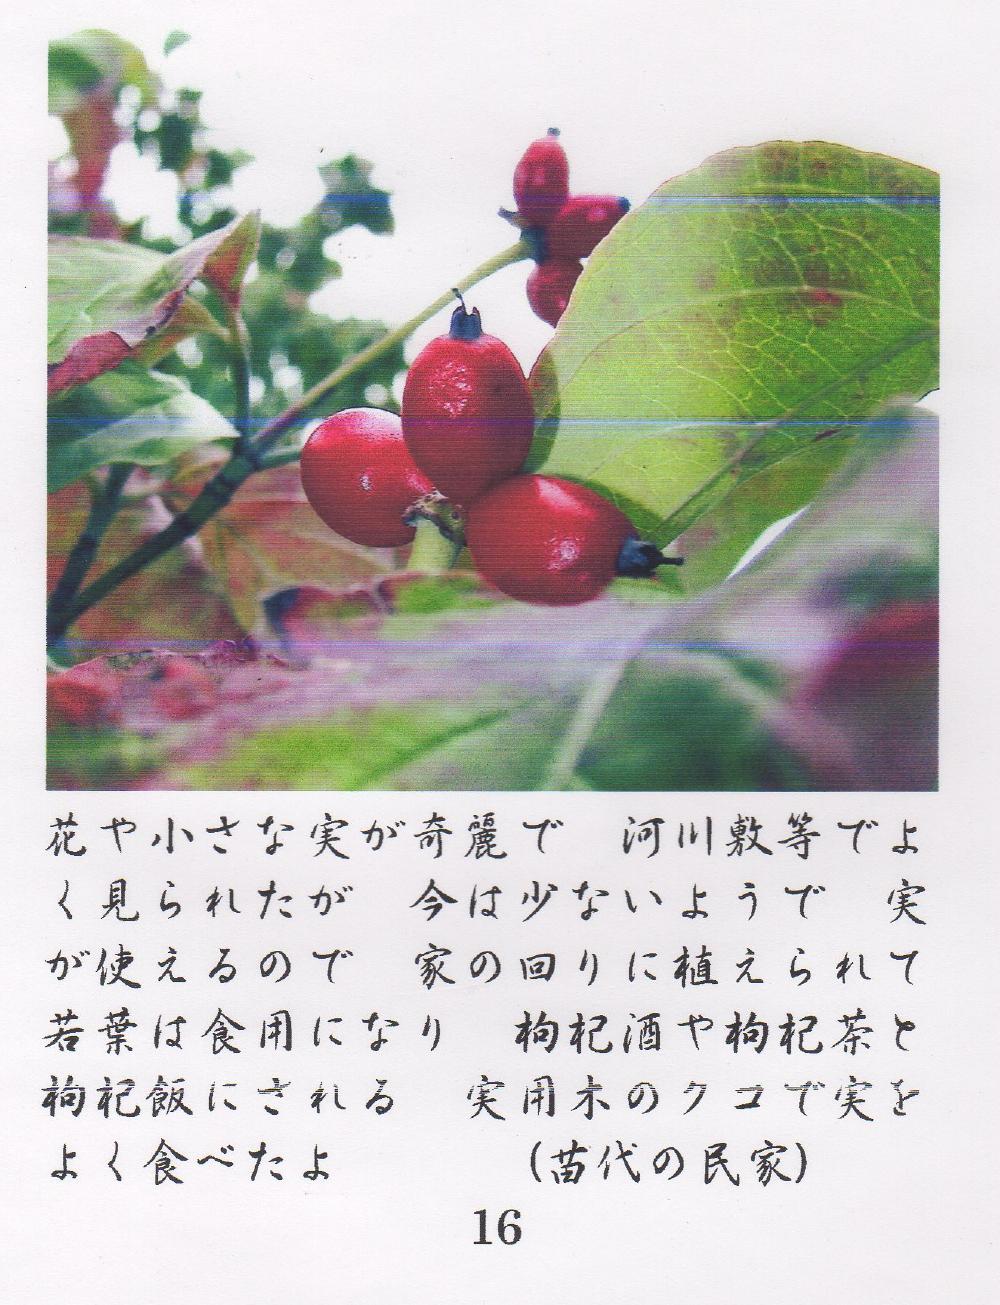 花や小さな実が奇麗で　河川敷等でよ
く見られたが　今は少ないようで　実
が使えるので　家の回りに植えられて
若葉は食用になり　枸杞酒や枸杞茶と
枸杞飯にされる　実用木のクコで実を
よく食べたよ　　　　（苗代の民家）
16